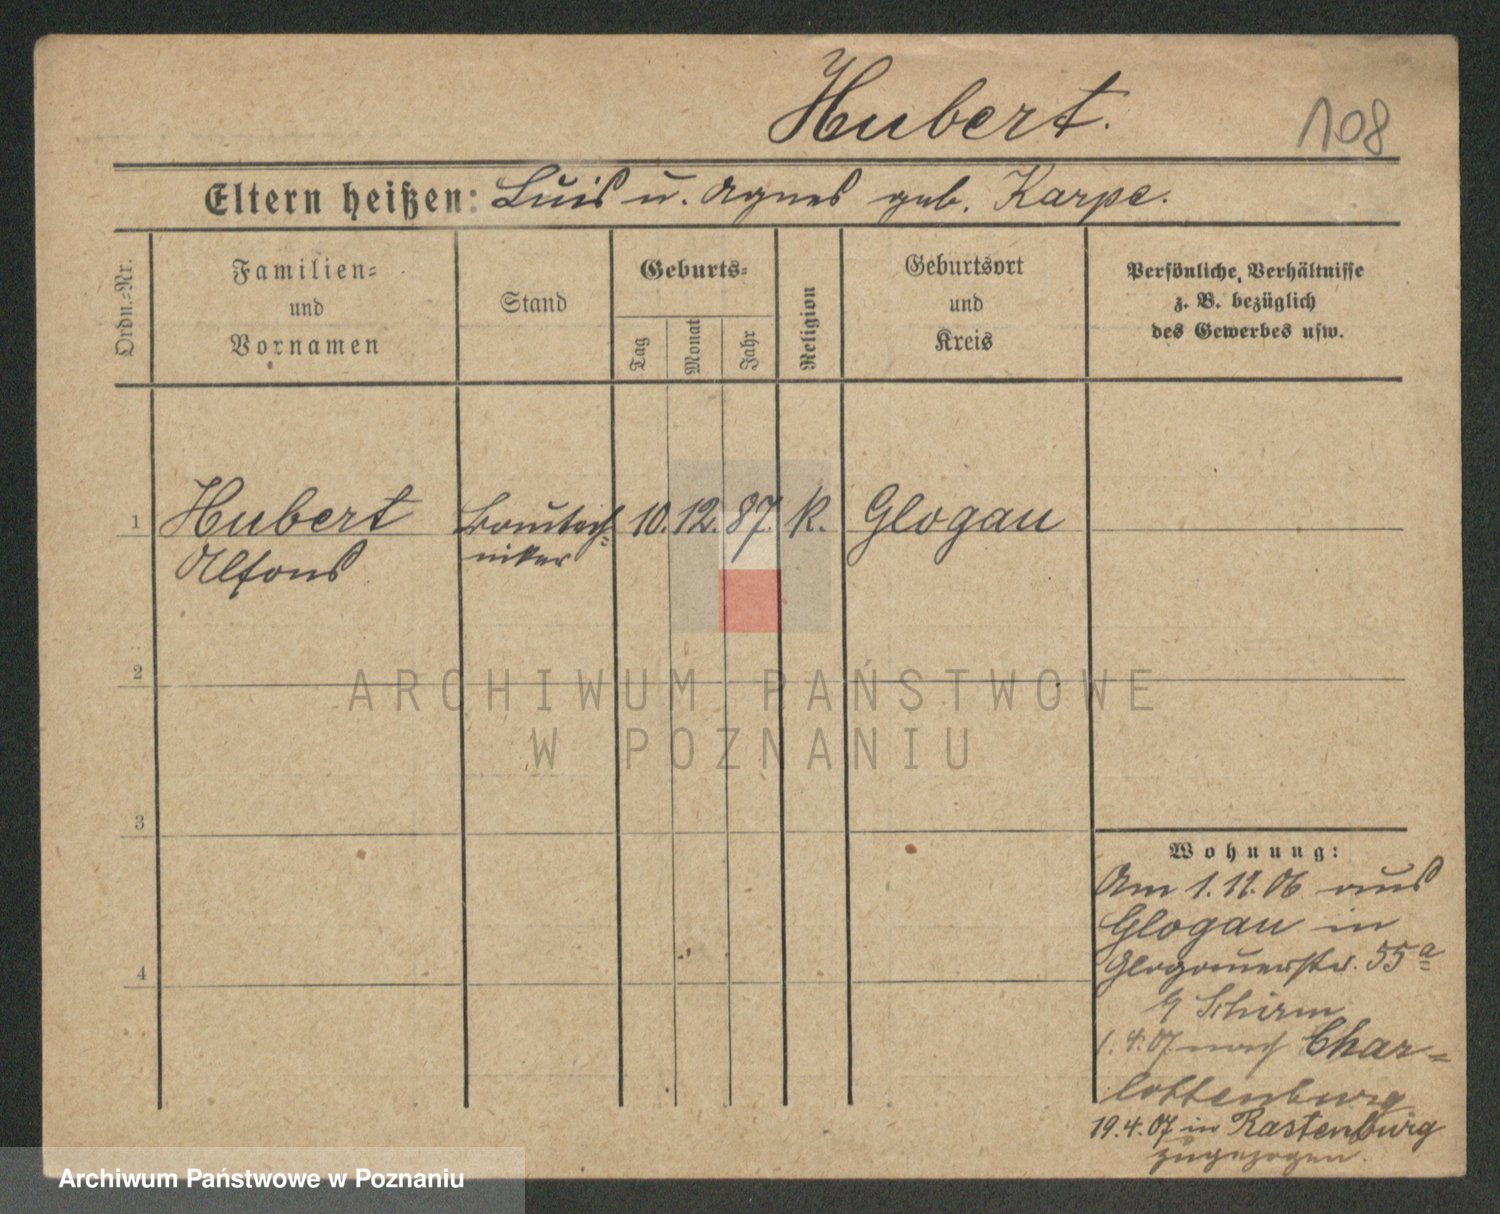 Hubert.
108
Eltern heißen: Luis u. Agnes geb. Karpe.
Ordn.=Nr.
Familien=
und
Vornamen
Stand
Geburts=
Tag
Monat
Jahr
Religion
Geburtsort
und
Kreis
Persönliche Verhältnisse
z. B. bezüglich
des Gewerbes usw.
1 Hubert Bautech= 10. 12. 87. k. Glogau
Alfons niker
2
3
4
Wohnung:
Am 1.11.06 aus
Glogau in
Glogauerstr. 55a
Schirm
1.4.07 nach Char=
lottenburg
19.4.07 in Rastenburg
zugezogen.
ARCHIWUM PAŃSTWOWE
W POZNANIU
Archiwum Państwowe w Poznaniu